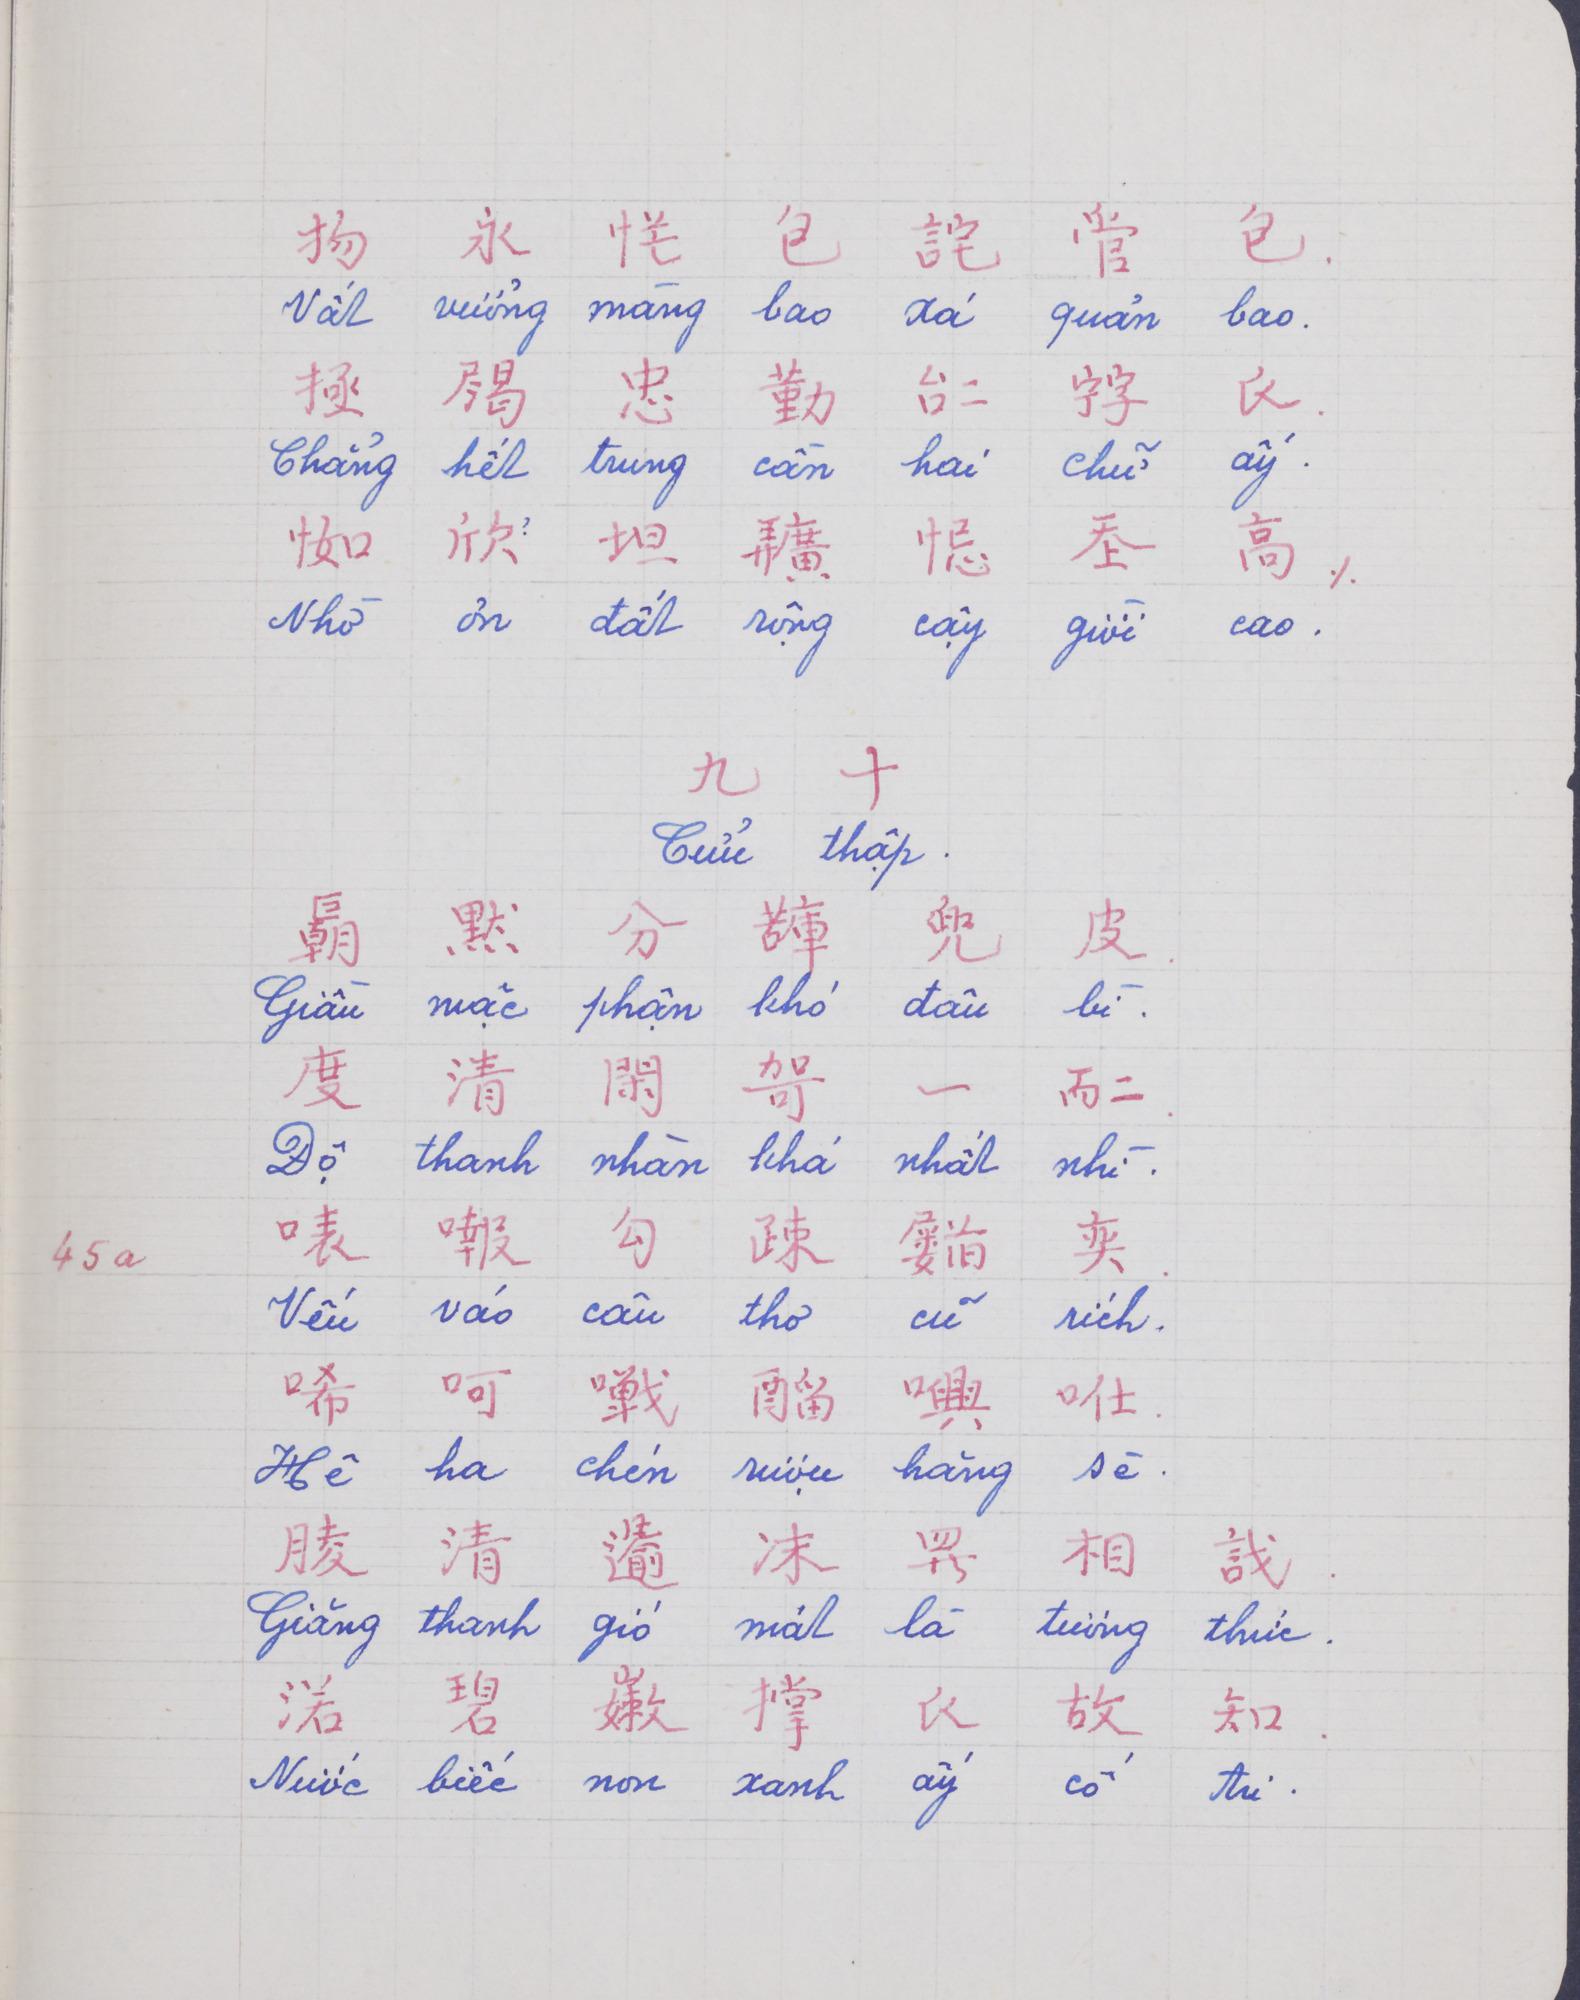 永 恾 包 詫 管 包.
Vất vưởng màng bao xá quản bao.
忠 勤 𠄩 𡨸 氏.
Chẳng hết trung cần hai chữ ấy.
坦 𢌌 忌 𡗶 高 ./.
Nhờ ơn đất rộng cậy giời cao.
九 十
Cửu thập.
默 分 兜 皮.
Giầu mặc phận khó đâu bì.
度 清 閑 哿 一 而二.
Độ thanh nhàn khá nhất nhì.
勾 疎 奕.
45a
Vếu váo câu thơ cũ rích.
唏 呵 嘽
Hê ha chén rượu hăng sè.
清 沫 羅 相 識.
Giăng thanh gió mát là tương thức.
渃 碧 撑 氏 故 知.
Nước biếc non xanh ấy cố tri.